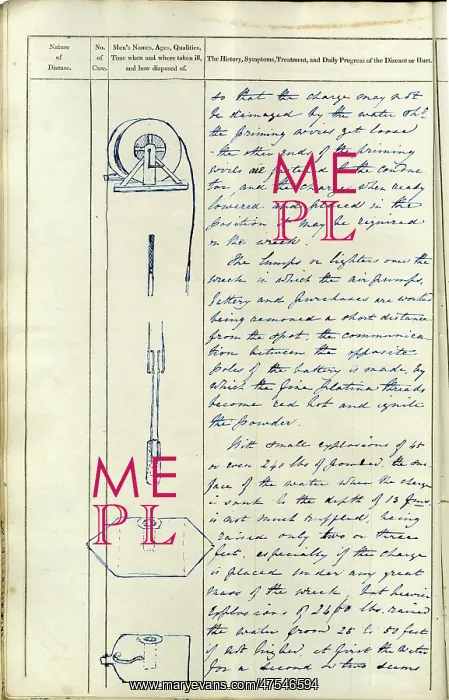 Nature
of
Disease.
No.
of
Case.
Men's Names, Ages, Qualities,
Time when and where taken ill,
and how disposed of.
The History, Symptoms, Treatment, and Daily Progress of the Disease or Hurt.
so that the charge may not
be damaged by the water shd
the priming wires get loose
- the other ends of the priming
wires are to the conduc
tor, and the charge when ready
lowered and placed in the
position it may be required
in the wreck.
The lumps or lighters over the
wreck in which the air pumps,
battery and purchases are worked
being removed a short distance
from the spot, the communica
tion between the opposite
poles of the battery is made, by
which the fine platina threads
become red hot and ignite
the powder.
With small explosions of 45
or even 240 lbs of powder, the sur
face of the water when the charge
is sunk to the depth of 13 fms.
is not much rippled, being
raised only two or three
feet, especially if the charge
is placed under any great
mass of the wreck, but heavier
explosions of lbs. raised
the water from 25 to 50 feet
if not higher. At first the water
for a second or two seems
ME
PL
ME
PL
www.maryevans.com/47546594